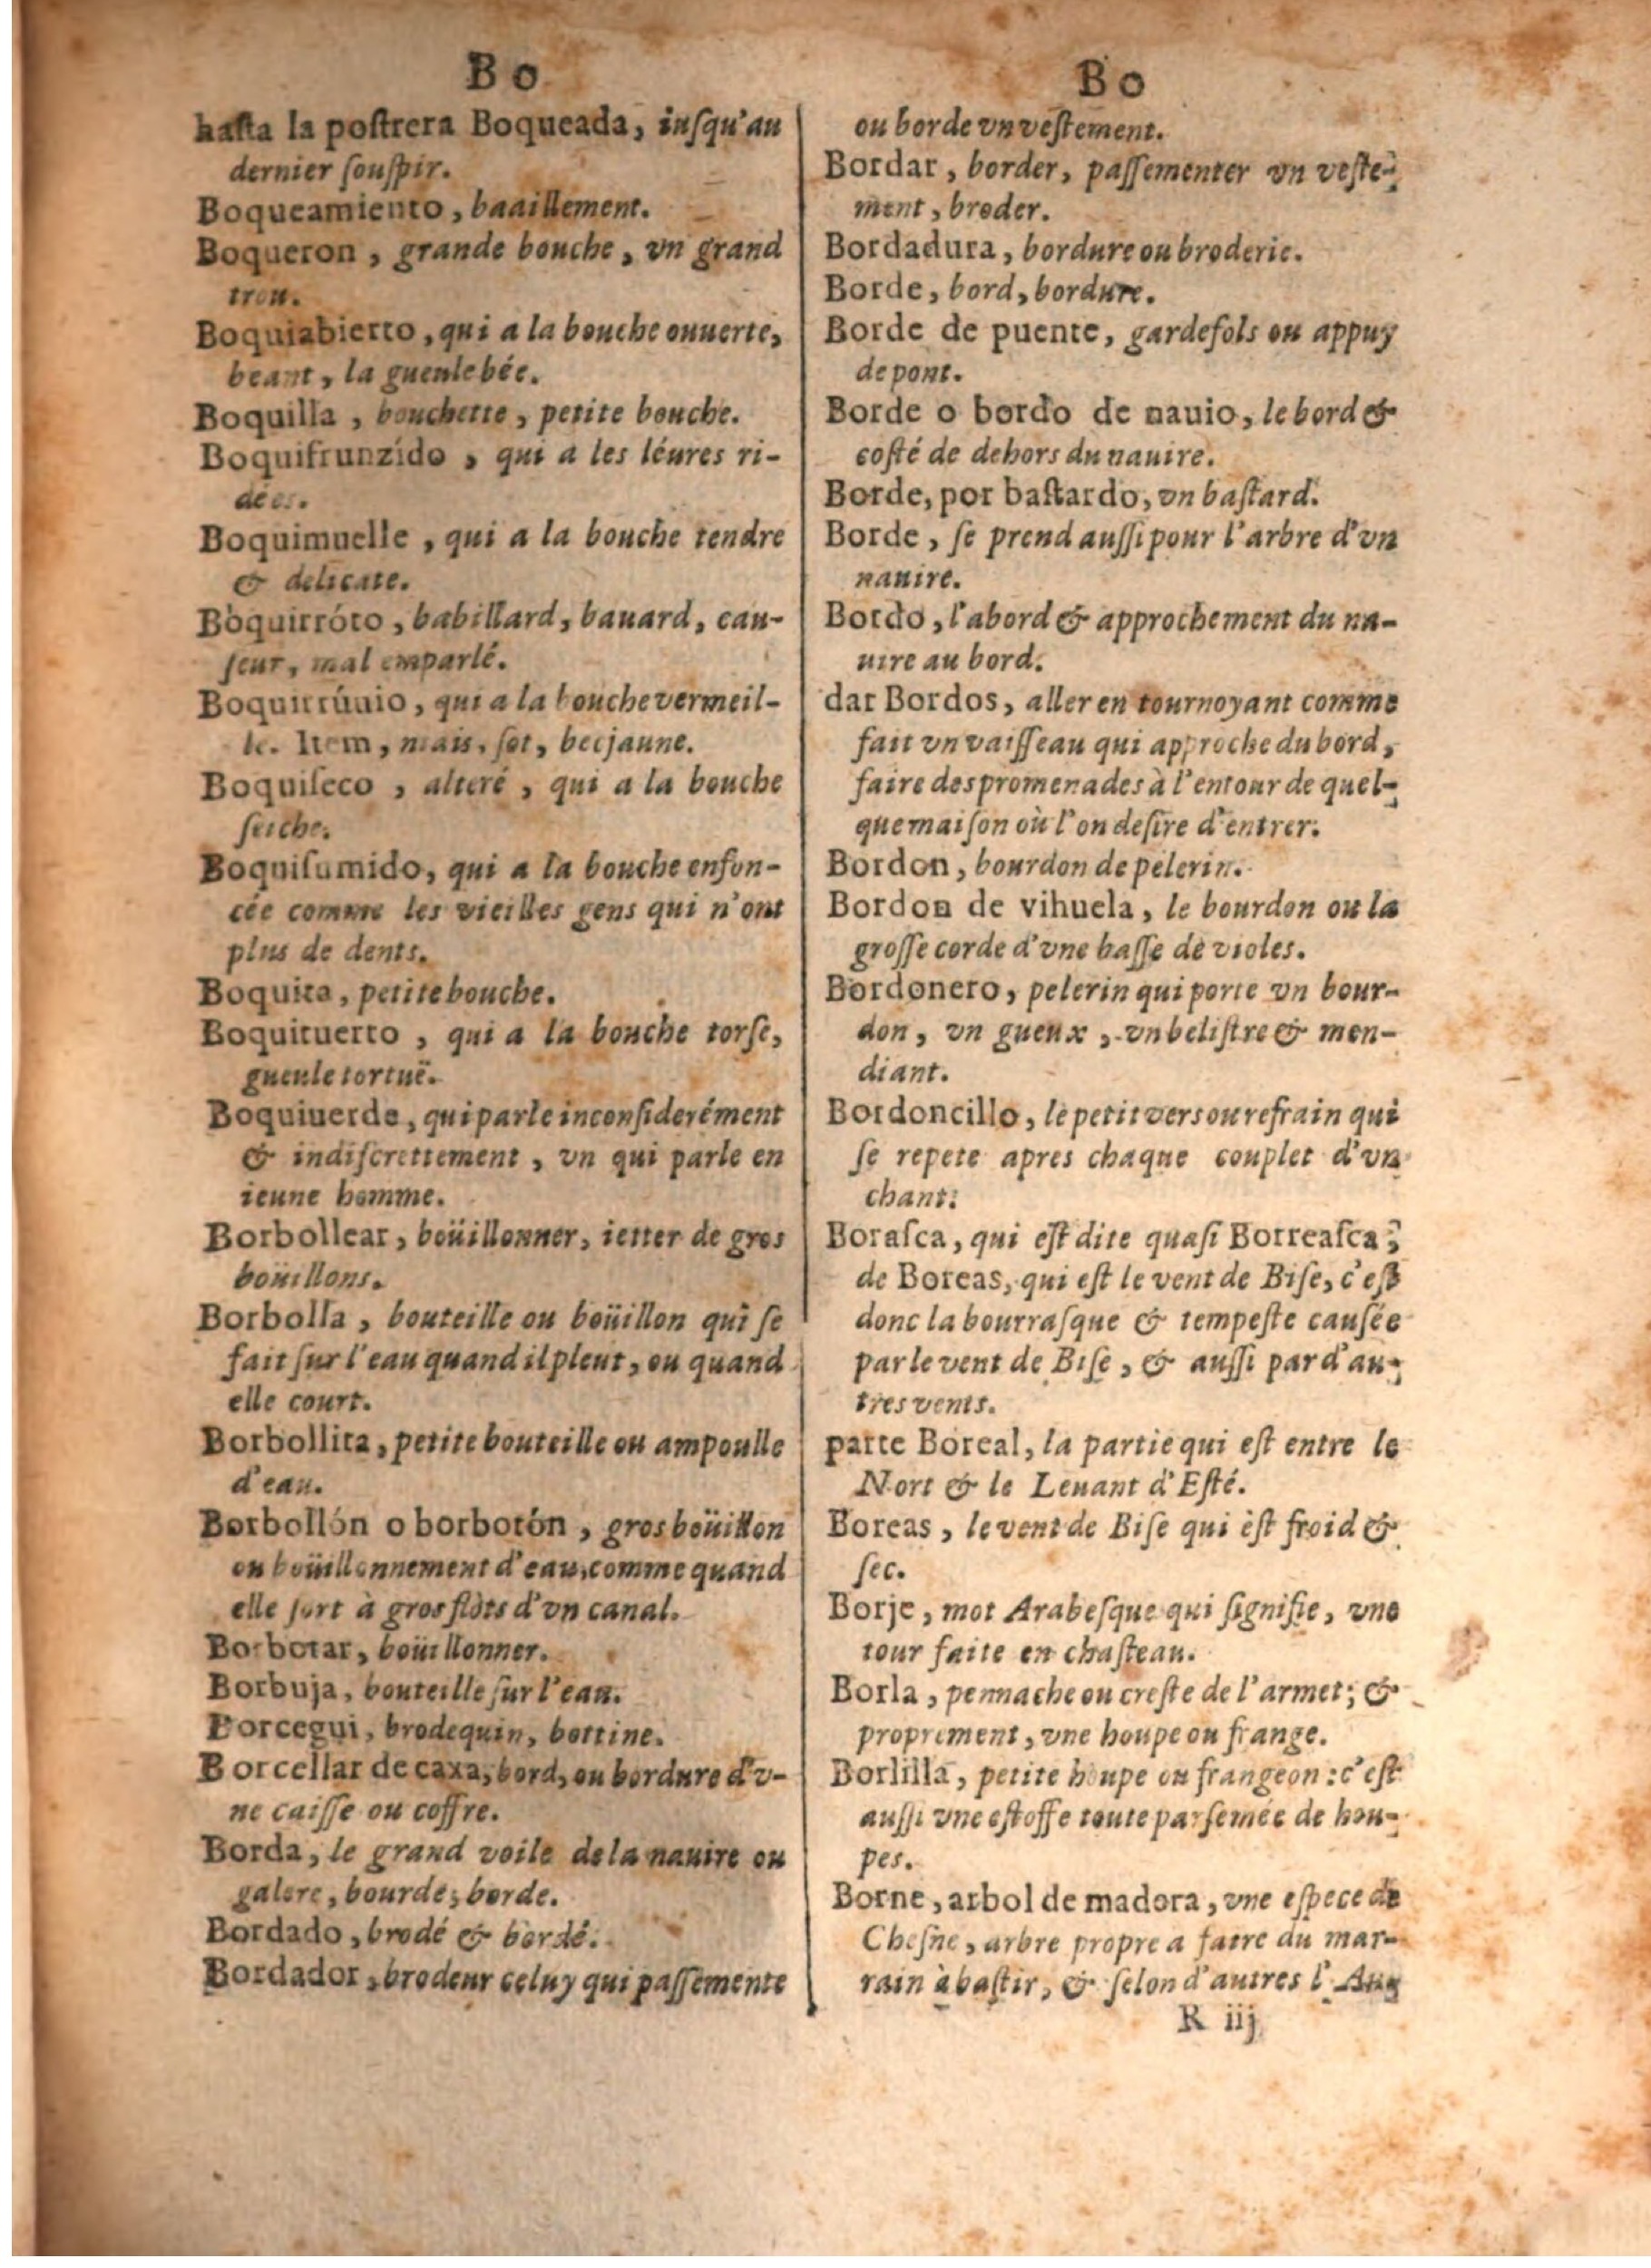 B o
hasta la postrera Boqueada, iusqu'au
dernier souspir.
Boqueamiento, baaillement.
Boqueron, grande bouche, vn grand
trou.
Boquiabierto, qui a la bouche ouuerte,
beant, la gueule bée.
Boquilla, bouchette, petite bouche.
Boquifrunzído, qui a les léures ri-
dées.
Boquimuelle, qui a la bouche tendre
& delicate.
Boquirróto, babillard, bauard, cau-
seur, mal emparlé.
Boquirrúuio, qui a la bouche vermeil-
le. Item, niais, sot, becjaune.
Boquiseco, alteré, qui a la bouche
seiche.
Boquisumido, qui a la bouche enfon-
cée comme les vieilles gens qui n'ont
plus de dents.
Boquita, petite bouche.
Boquituerto, qui a la bouche torse,
gueule tortuë.
Boquiuerde, qui parle inconsiderément
& indiscrettement, vn qui parle en
ieune homme.
Borbollear, boüillonner, ietter de gros
boüillons.
Borbolla, bouteille ou boüillon qui se
fait sur l'eau quand il pleut, ou quand
elle court.
Borbollita, petite bouteille ou ampoulle
d'eau.
Borbollón o borbotón, gros boüillon
ou boüillonnement d'eau, comme quand
elle sort à gros flots d'vn canal.
Borbotar, boüillonner.
Borbuja, bouteille sur l'eau.
Borcegui, brodequin, bottine.
Borcellar de caxa, bord, ou bordure d'v-
ne caisse ou coffre.
Borda, le grand voile de la nauire ou
galere, bourde, borde.
Bordado, brodé & bordé.
Bordador, brodeur celuy qui passemente
B o
ou borde vn vestement.
Bordar, border, passementer vn veste-
ment, broder.
Bordadura, bordure ou broderie.
Borde, bord, bordure.
Borde de puente, gardefols ou appuy
de pont.
Borde o bordo de nauio, le bord &
costé de dehors du nauire.
Borde, por bastardo, vn bastard.
Borde, se prend aussi pour l'arbre d'vn
nauire.
Bordo, l'abord & approchement du na-
uire au bord.
dar Bordos, aller en tournoyant comme
fait vn vaisseau qui approche du bord,
faire des promenades à l'entour de quel-
que maison où l'on desire d'entrer.
Bordon, bourdon de pelerin.
Bordon de vihuela, le bourdon ou la
grosse corde d'vne basse de violes.
Bordonero, pelerin qui porte vn bour-
don, vn gueux, vn belistre & men-
diant.
Bordoncillo, le petit vers ou refrain qui
se repete apres chaque couplet d'vn
chant.
Borasca, qui est dite quasi Borreasca,
de Boreas, qui est le vent de Bise, c'est
donc la bourrasque & tempeste causée
par le vent de Bise, & aussi par d'au-
tres vents.
parte Boreal, la partie qui est entre le
Nort & le Leuant d'Esté.
Boreas, le vent de Bise qui est froid &
sec.
Borje, mot Arabesque qui signifie, vne
tour faite en chasteau.
Borla, pennache ou creste de l'armet; &
proprement, vne houpe ou frange.
Borlilla, petite houpe ou frangeon: c'est
aussi vne estoffe toute parsemée de hou-
pes.
Borne, arbol de madera, vne espece de
Chesne, arbre propre a faire du mar-
rain à bastir, & selon d'autres l'Au
R iij